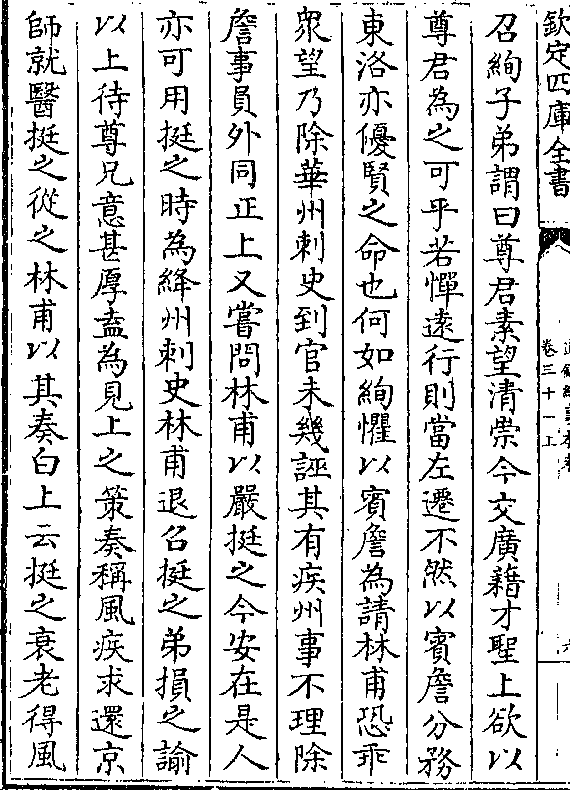 欽定四庫全書
卷三十一上
召絢子弟謂曰尊君素望清崇今交廣藉才聖上欲以
尊君為之可乎若憚遠行則當左遷不然以賓詹分務
東洛亦優賢之命也何如絢懼以賓詹為請林甫恐乖
衆望乃除華州刺史到官未幾誣其有疾州事不理除
詹事員外同正上又嘗問林甫以嚴挺之今安在是人
亦可用挺之時為絳州刺史林甫退召挺之弟損之諭
以上待尊兄意甚厚盍為見上之策奏稱風疾求還京
師就醫挺之從之林甫以其奏白上云挺之衰老得風